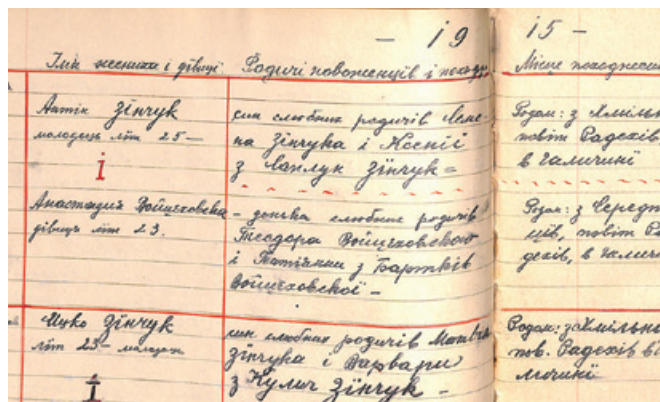 — 19 15 —
Імя женихи і дівиці Родичі новоженців і походж Місце походженн
Антін Зінчук
молодець літ 25—
і
син слюбних родичів
на Зінчука і Ксенії
з Заплук Зінчук =
Родом: з Хмільн
повіт Радехів
в Галичині
Анастазия Войцеховска
дівиця літ 23.
— донька слюбних родичів
Теодора Войцеховского
і Татіянни з Бартків
Войцеховскої —
Родом: з Середп
ців, повіт Ра
дехів, в Галич
Ицко Зінчук
літ 23— молодець
і
син слюбних родичів Матвія
Зінчука і Варвари
з Кулич Зінчук —
Родом: з Хмільн
пов. Радехів в Га
личині